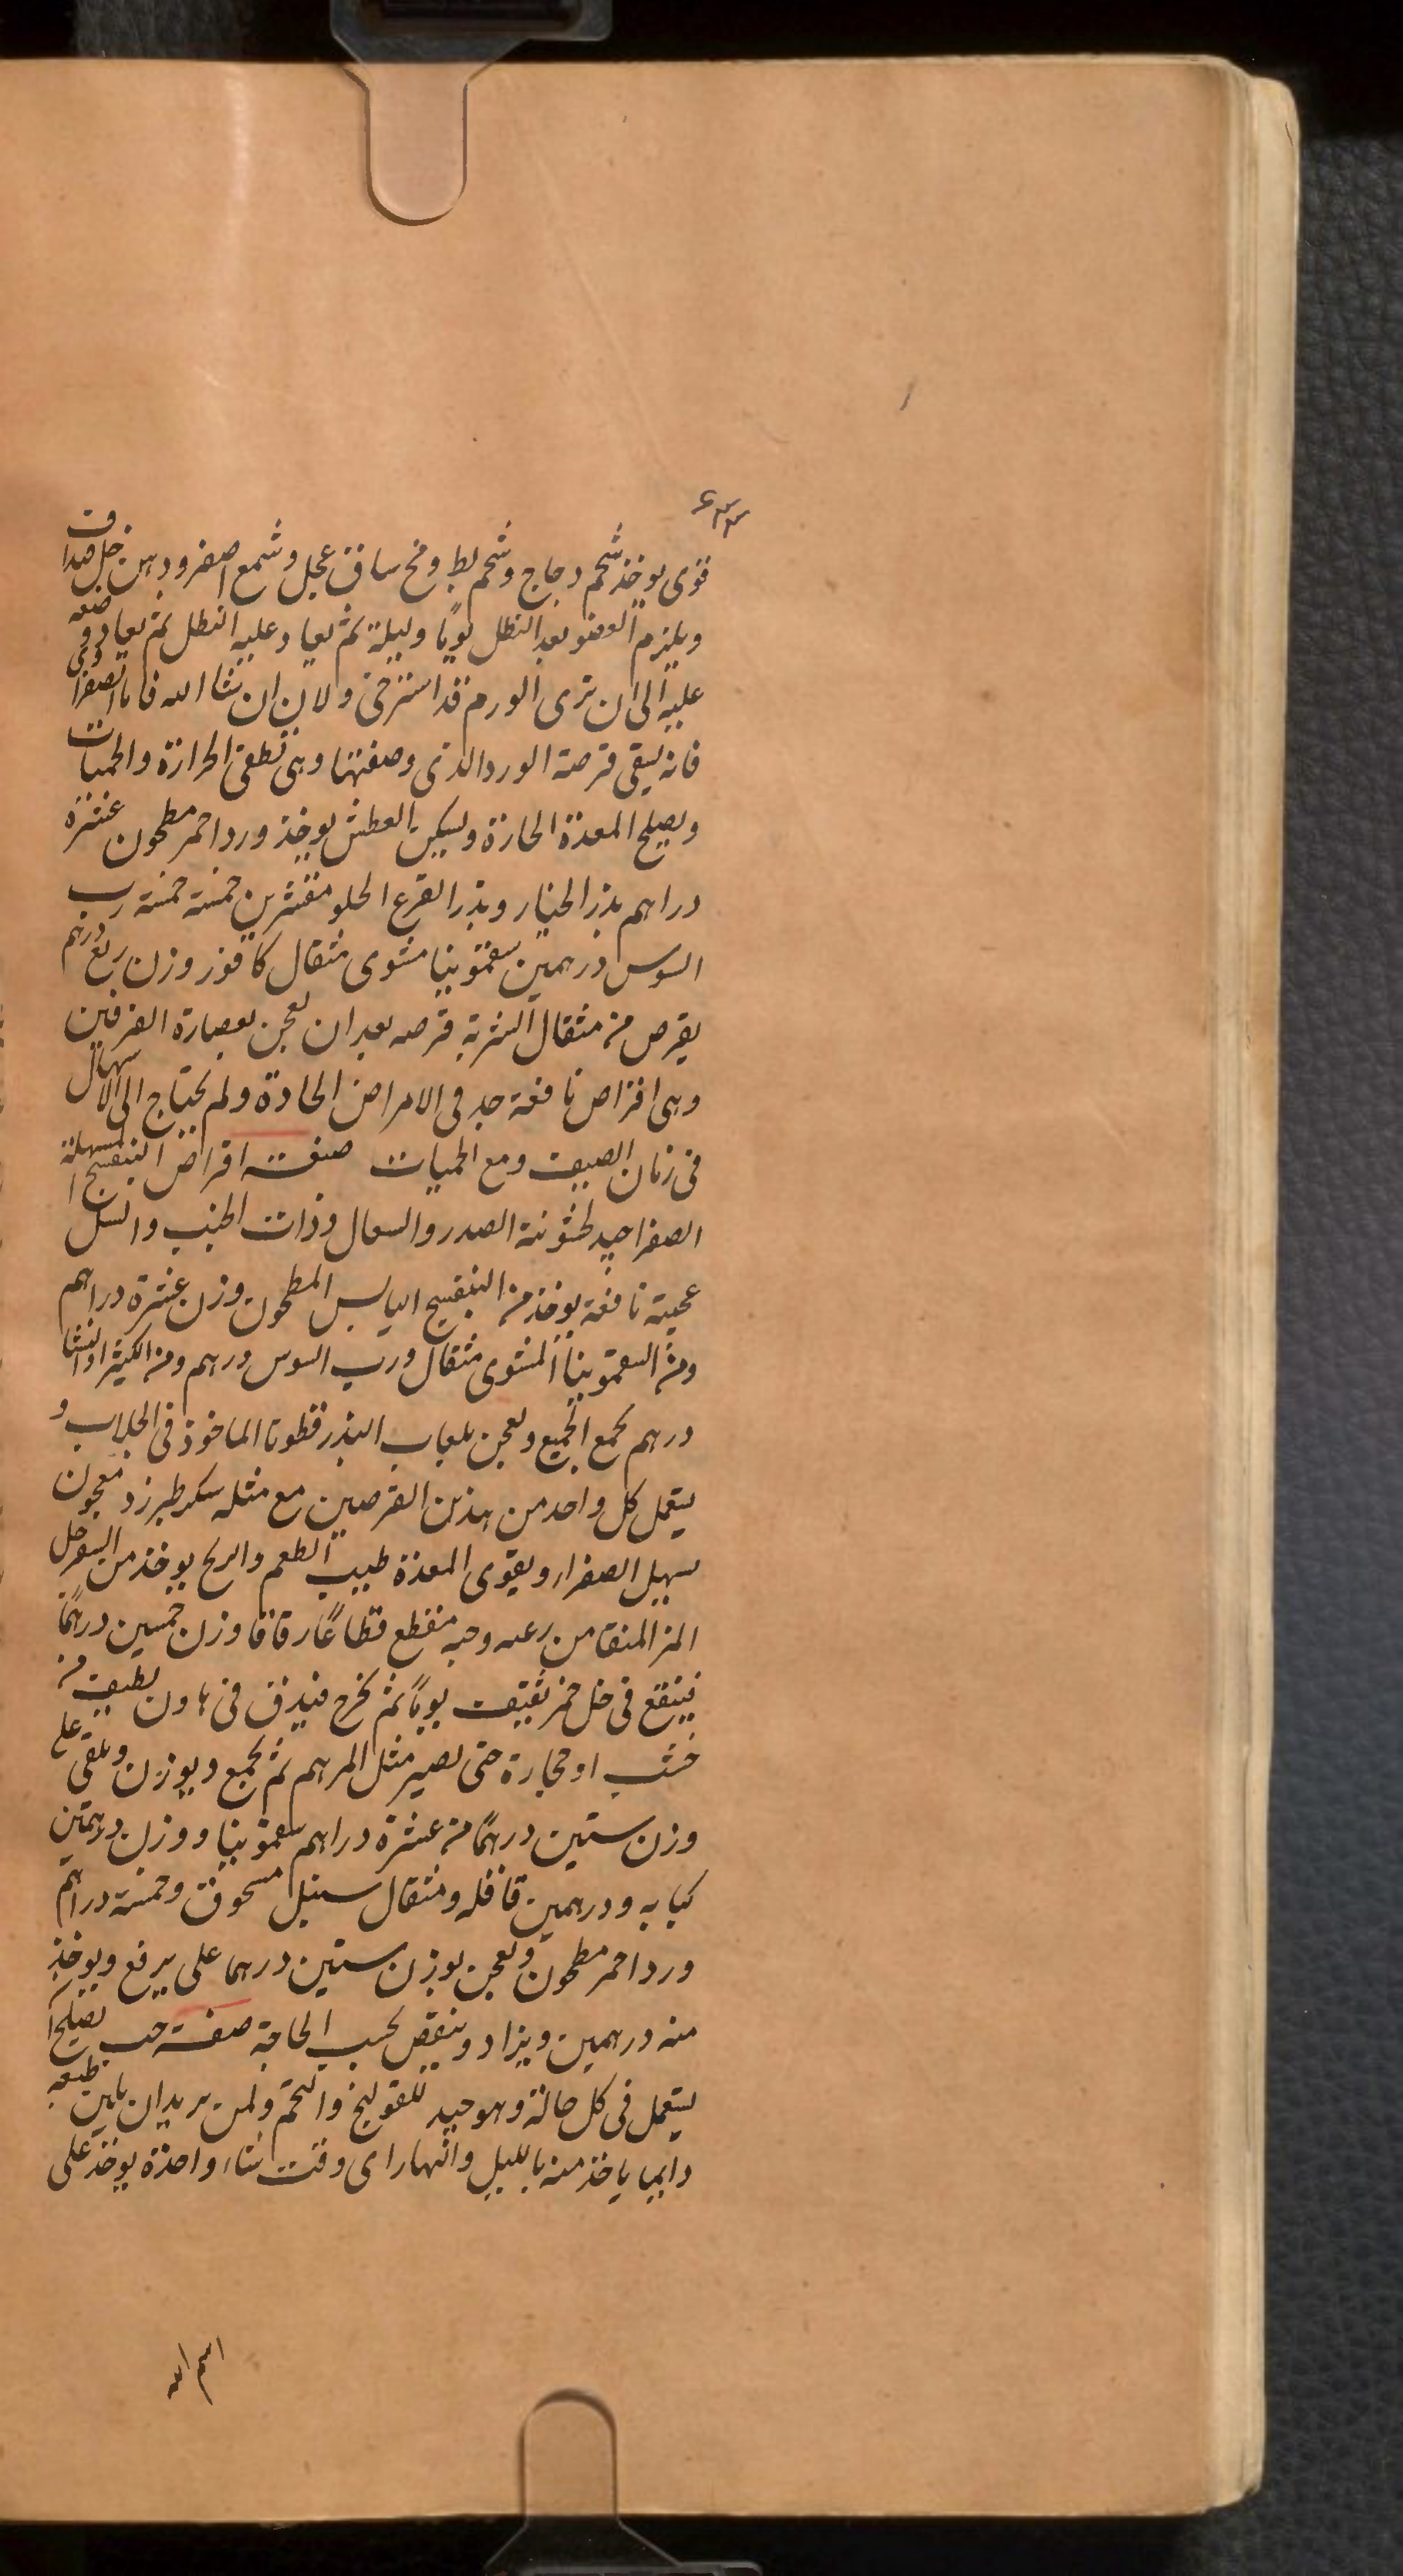 ۶۳۳
قوى يوخذ شحم دجاج وشحم بط ومخ ساق عجل وشمع اصفر ودهن خل يداف
ويلزم العضو بعد النطل يومًا وليلة ثم يعاد عليه النطل ثم يعاد وضعه
عليه الى ان ترى الورم قد استرخى ولان ان شا الله فاما الصفرا
فانه يسقى قرصة الورد الذى وصفتها وهى تطفى الحرارة والحميات
ويصلح المعدة الحارة ويسكن العطش يوخذ ورد احمر مطحون عشرة
دراهم بذر الخيار وبذر القرع الحلو مقشرين خمسة خمسة رب
السوس درهمين سقمونيا مشوى مثقال كافور وزن ربع درهم
يقرص من مثقال الشربة قرصه بعد ان يعجن بعصارة الفرفين
وهى اقراص نافعة جد فى الامراض الحادة ولم يحتاج الى الاسهال
فى زمان الصيف ومع الحميات صفت اقراص البنفسج المسهلة
الصفرا جيد لخشونة الصدر والسعال وذات الجنب والسل
عجيبة نافعة يوخذ من البنفسج اليابس المطحون وزن عشرة دراهم
ومن السقمونيا المشوى مثقال ورب السوس درهم ومن الكثيرا والنشا
درهم يجمع الجميع ويعجن بلعاب البذر قطونا الماخوذ فى الجلاب و
يستعمل كل واحد من هذين القرصين مع مثله سكر طبرزد معجون
يسهل الصفراء ويقوى المعدة طيب الطعم والريح يوخذ من السفرجل
المز المنقا من زغبه وحبه مقطع قطاعًا رقاقا وزن خمسين درهمًا
فينقع فى خل خمر ثقيف يومًا ثم يخرج فيدق فى هاون لطيف من
خشب او حجارة حتى يصير مثل المرهم ثم يجمع ويوزن ويلقى على
وزن ستين درهمًا من عشرة دراهم سقمونيا ووزن درهمين
كبابه ودرهمين قاقله ومثقال سنبل مسحوق وخمسة دراهم
ورد احمر مطحون ويعجن بوزن ستين درهما على يرفع ويوخذ
منه درهمين ويزاد وينقص بحسب الحاجة صفت حب يصلح ا
يستعمل فى كل حالة وهو جيد للقولنج والتخم ولمن يريد ان يلين طبعه
دايما ياخذ منه بالليل والنهار اى وقت شاء واحدة يوخذ على
اسم الله